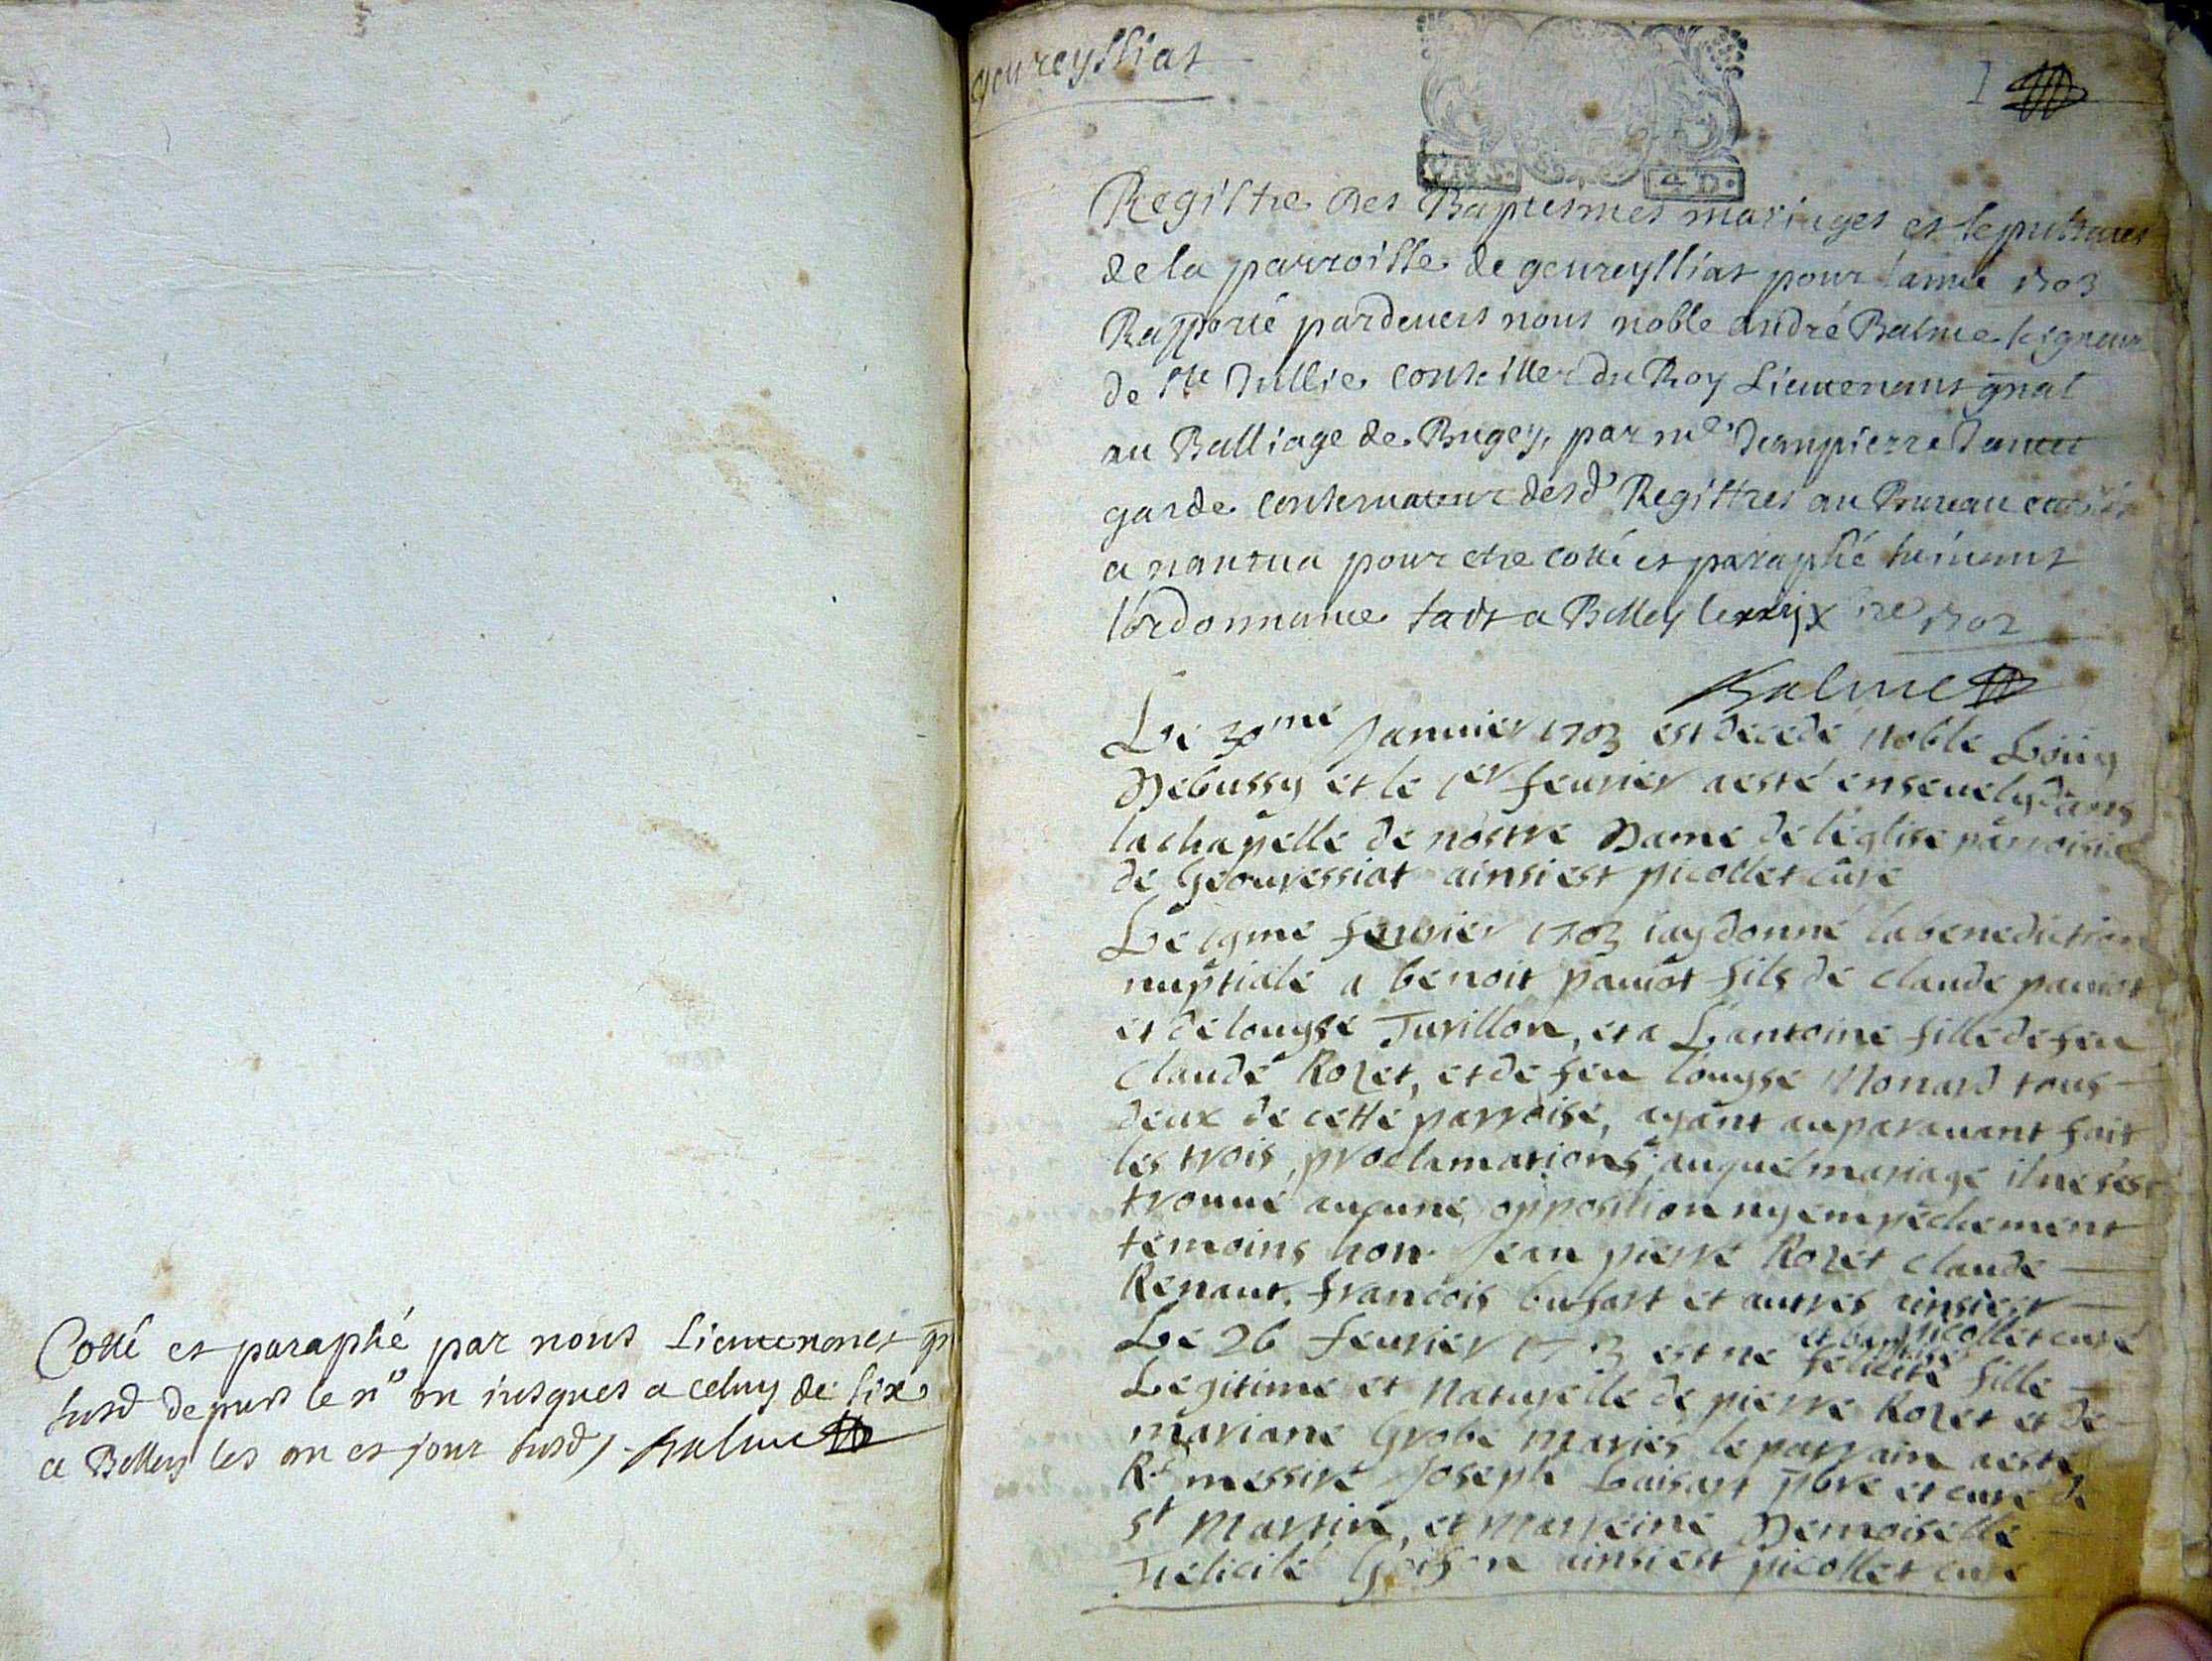 Cotté et paraphé par nous Lieutenant gñ
susd depuis le n° un jusques a celuy de six
a Belley les an et jour susd Balme
geureyssiat
1
Registre des Baptesmes mariages et sepultures
de la parroisse de geureyssiat pour lannée 1703
Rapporté pardeuers nous noble andré Balme seigneur
de Ste Jullie conseiller du Roy Lieutenant gñal
au Balliage de Bugey, par me Jeanpierre
garde conseruateur desd Registres au Bureau
a nantua pour etre cotté et paraphé suiuant
l'ordonnance fait a Belley le xbre 1702
Balme
Le 30me Januier 1703 est decedé noble Louy
Debussy et le 1er feurier a esté enseuely dans
la chapelle de nostre Dame de l'église parroisial
de Geouressiat ainsi est picollet curé
Le 19me feurier 1703 iay donné la benediction
nuptiale a benoit pauiot fils de claude pauiot
et de louyse Turillon, et a L'antoine fille de feu
Claude Rozet, et de feu louyse Monard tous
deux de cette parroise, ayant auparauant fait
les trois proclamations, auquel mariage il ne s'est
trouué aucune opposition ny empéchement
témoins hon. Jean pierre Rozet claude
Renaut, francois bufart et autres ainsi est
picollet curé
Le 26 feurier 1703 est né et baptisé félicité fille
Légitime et Naturelle de pierre Rozet et de
mariane Grobe mariés le parrain a esté
Rd messire Joseph Laisart pbre et curé de
St Martin, et marreine Demoiselle
Félicité ainsi est picollet curé